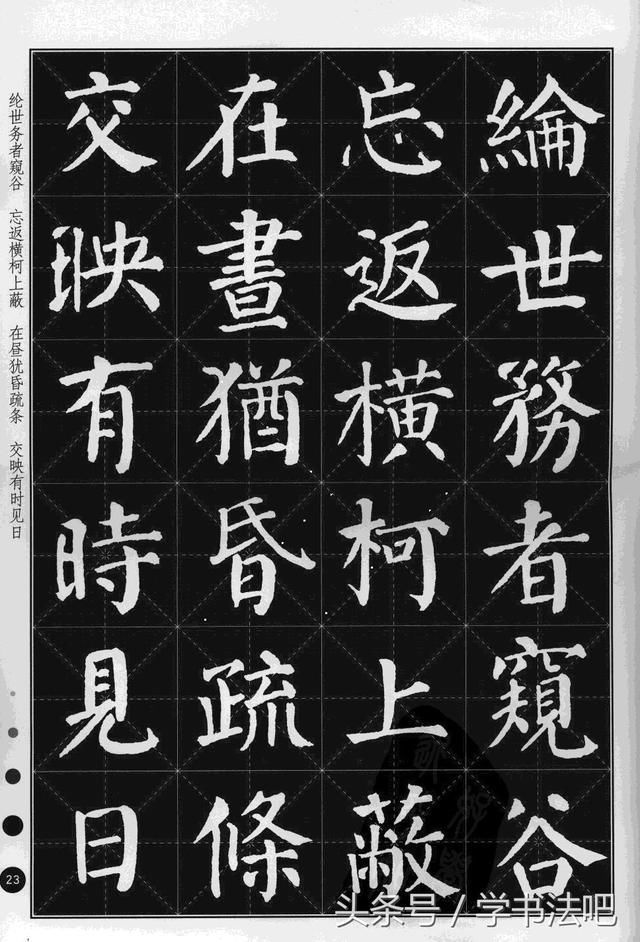 綸世務者窺谷
忘返橫柯上蔽
在晝猶昏疏條
交映有時見日
纶世务者窥谷 忘返横柯上蔽 在昼犹昏疏条 交映有时见日
23
头条号 / 学书法吧